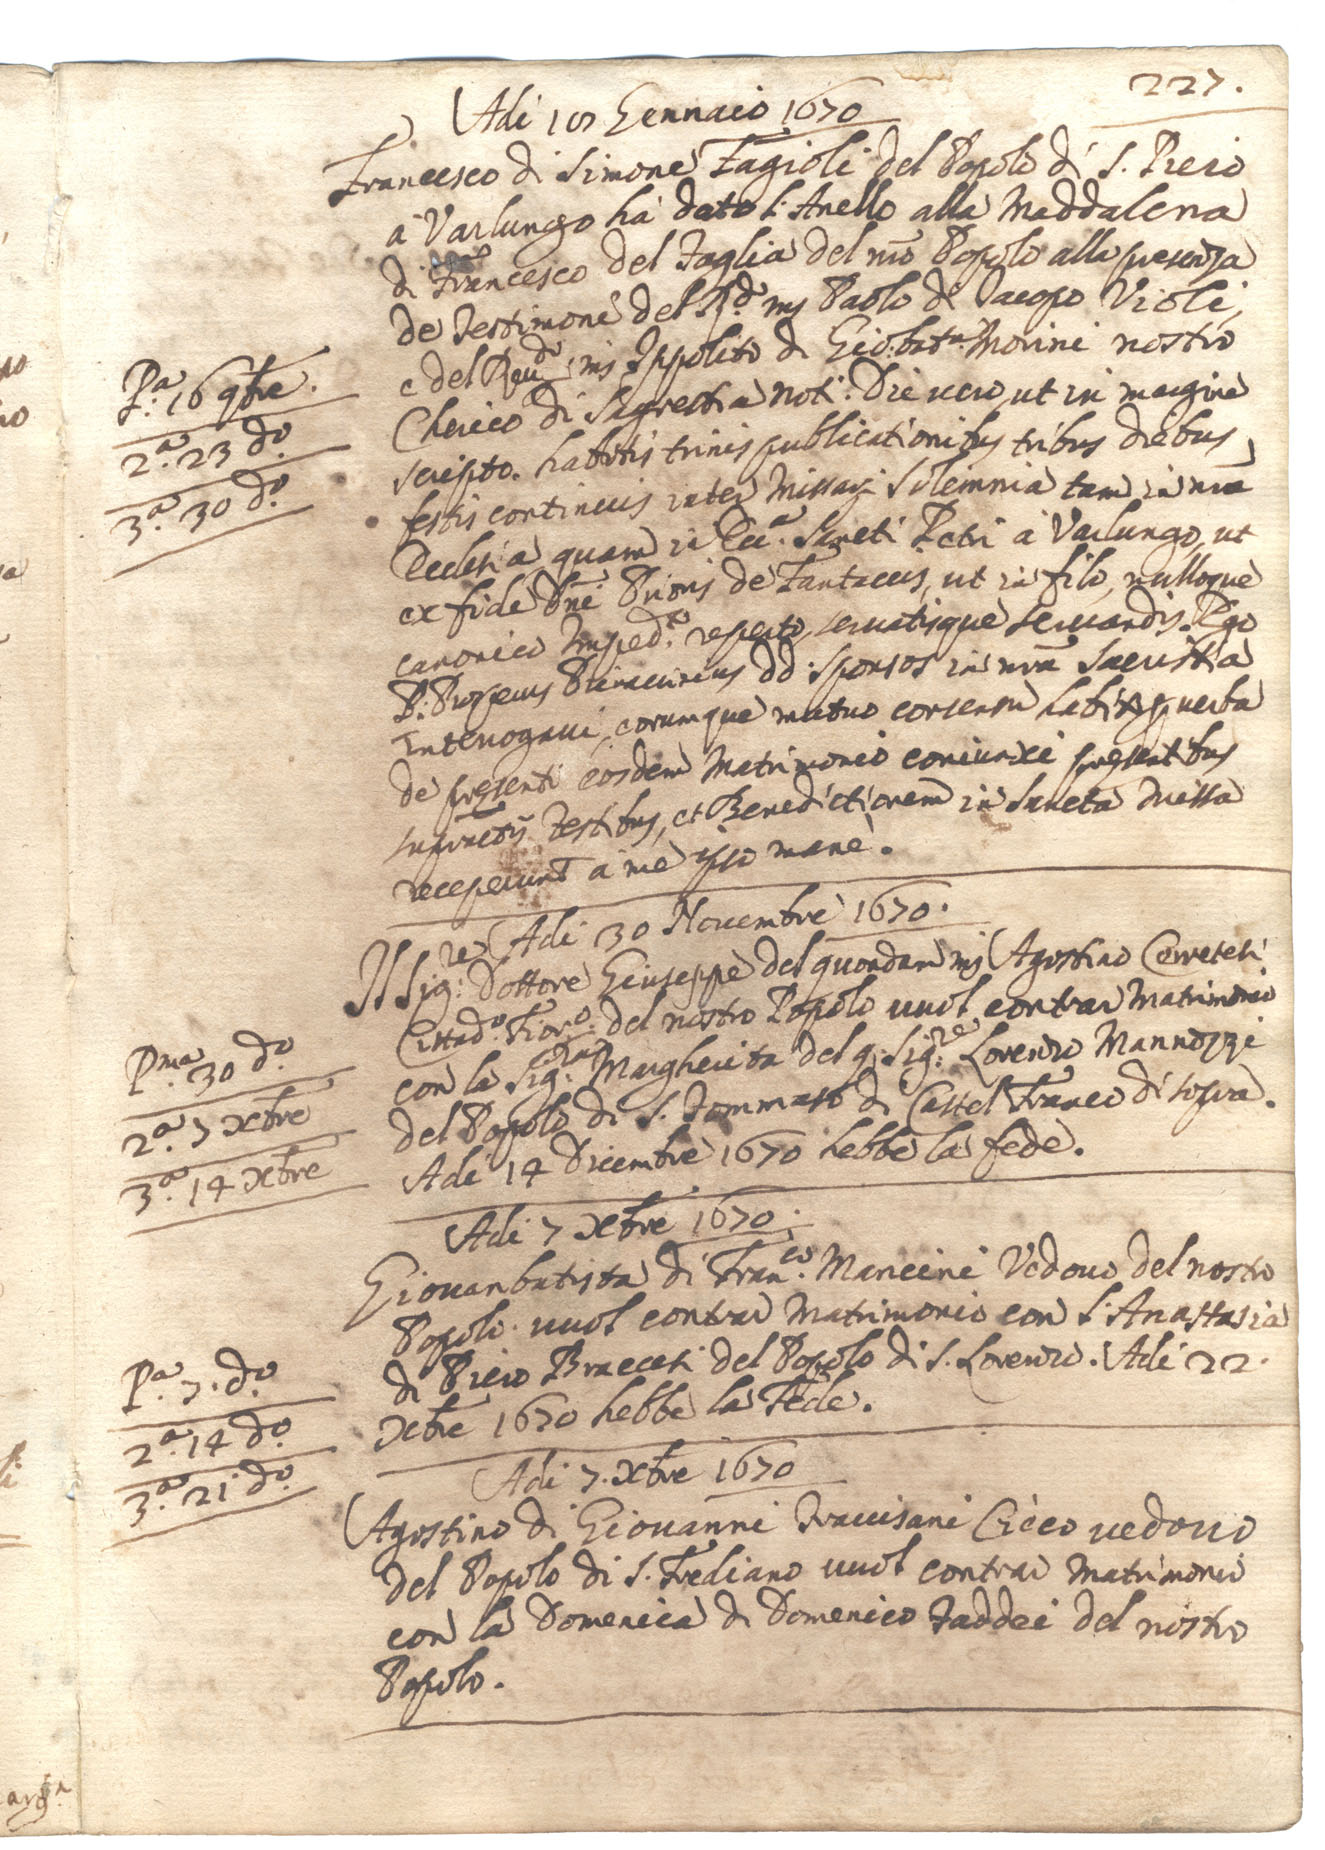 227.
Adi 10 Gennaio 1670
Francesco di Simone Fagioli del Popolo di S. Piero
à Varlungo hà dato l'Anello alla Maddalena
di Francesco del Taglia del mo Popolo alla presenza
de Testimonè del Rdo ms Paolo di Jacopo Violi,
e del Reudo ms Ippolito di Gio:batta Morini nostro
Cherico di Sagrestia noti: Die uero, ut in margine
scripto. habitis trinis publicationibus tribus diebus
festis continuis inter Missarz Solemnia tam in nra
Ecclesia quam in Ecca. Sancti Petri à Varlungo, ut
ex fide Dni Prioris de Fantaccis, ut in filo, nulloque
canonico Impedto. reperto, seruatisque seruandis. Ego
P. Prosperus dd: Sponsos in nra Sacristia
interrogaui, eorumque mutuo consensu habito p uerba
de presenti eosdem Matrimonio coniunxi presentibus
supradtis Testibus, et Benedictionem in Sancta Missa
receperunt à me ipso mane.
Pa. 16 9bre.
2a. 23 do.
3a. 30 do.
Adi 30 Nouembre 1670.
Il Sigre: Dottore Giuseppe del quondam ms Agostino Cerretesi
Cittado. Fiorno: del nostro Popolo uuol contrar Matrimonio
con la Sigra: Margherita del q: Sigre: Lorenzo Mannozzi
del Popolo di S. Tommaso di Castel Franco di sopra.
Adi 14 Dicembre 1670 hebbe la fede.
Pma. 30 do.
2a. 7 Xbre
3a. 14 Xbre
Adi 7 Xbre 1670.
Giouanbatista di Franco. Mancini Vedouo del nostro
Popolo uuol contrar Matrimonio con l'Anastasia
di Piero Bracceti del Popolo di S. Lorenzo. Adi 22.
Xbre 1670 hebbe la Fede.
Pa. 7. do.
2a. 14 do.
3a. 21 do.
Adi 7. Xbre 1670
Agostino di Giouanni Trauisani Cieco uedouo
del Popolo di S. Frediano uuol contrar Matrimonio
con la Domenica di Domenico Taddei del nostro
Popolo.